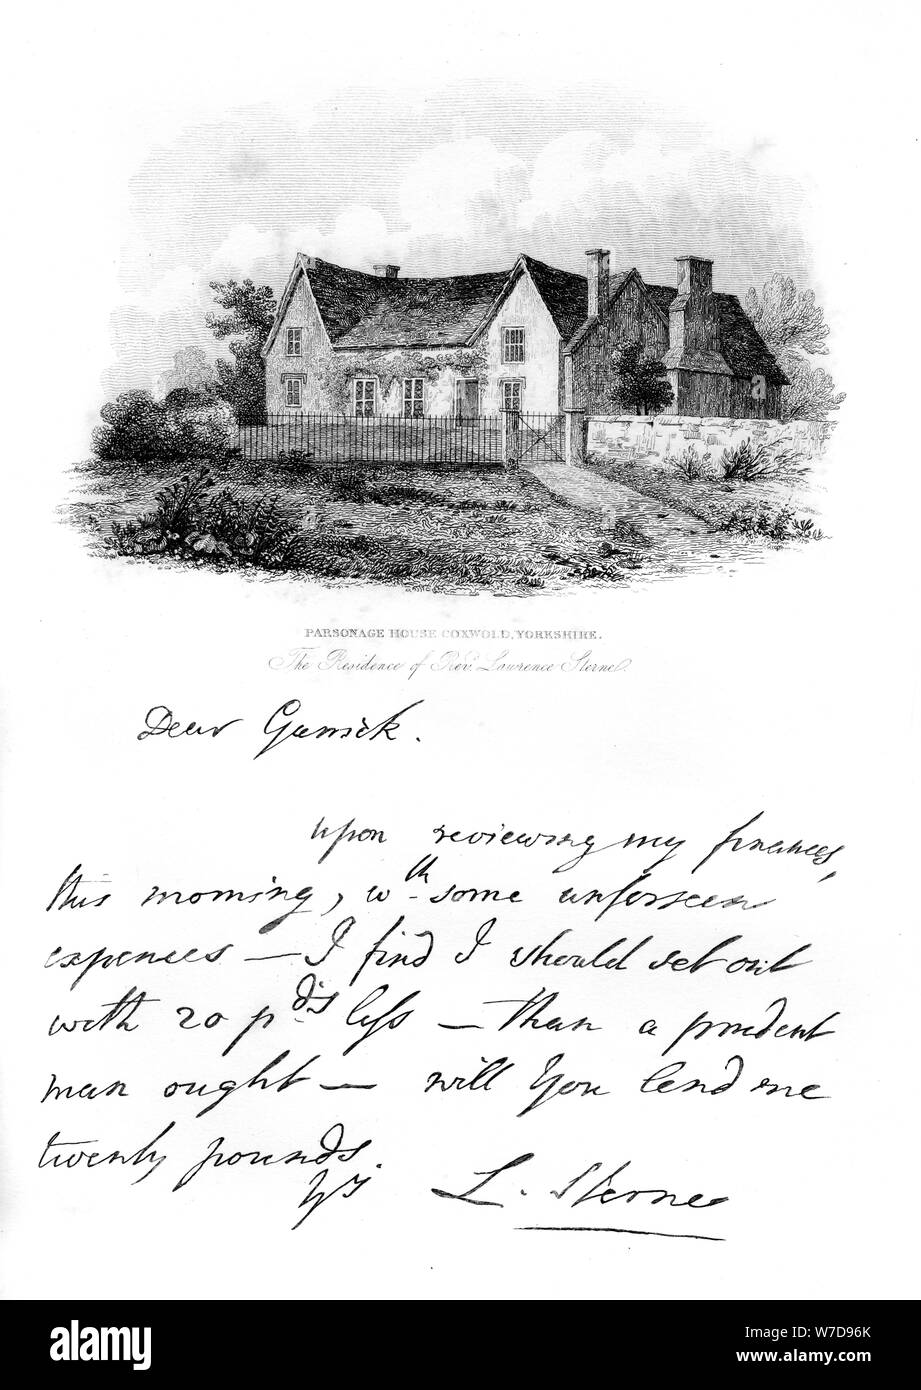 PARSONAGE HOUSE COXWOLD, YORKSHIRE.
The Residence of Revd. Laurence Sterne.
Dear Garrick.
upon reviewing my finances,
this morning, wth some unforseen
expences — I find I should set out
with 20 pds less — than a prudent
man ought — will You lend me
twenty pounds
Yrs L. Sterne
alamy
Image ID: W7D96K
www.alamy.com